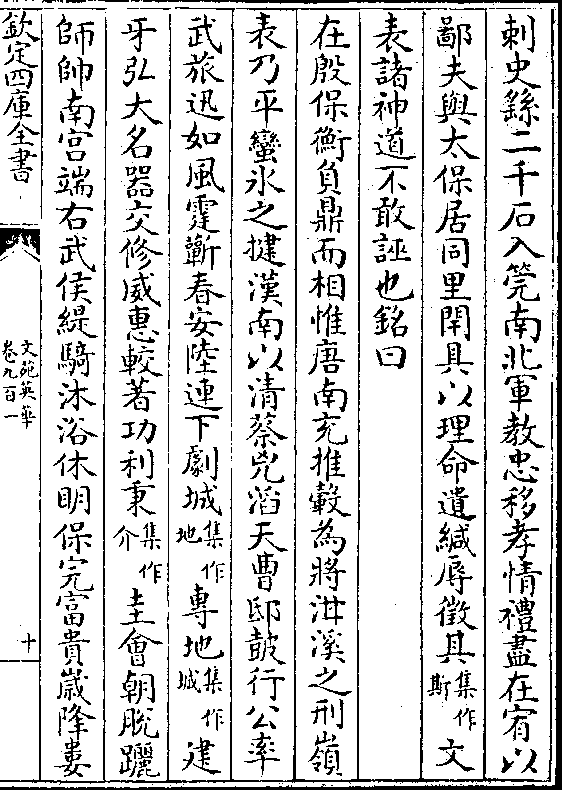 刺史繇二千石入筦南北軍教忠移孝情禮盡在宥以
鄙夫與太保居同里閈具以理命遺緘辱徵具集作斯文
表諸神道不敢誣也銘曰
在殷保衡負鼎而相惟唐南兖推轂為將泔溪之刑嶺
表乃平蠻氷之㨗漢南以清蔡兇滔天曹邸鼓行公率
武旅迅如風霆蘄春安陸連下劇城集作地專地集作城建
牙弘大名器交修威惠較著功利秉集作介圭會朝脫躧
師帥南宫端右武侯緹騎沐浴休明保完富貴嵗隆婁
欽定四庫全書
文苑英華
卷九百一
十